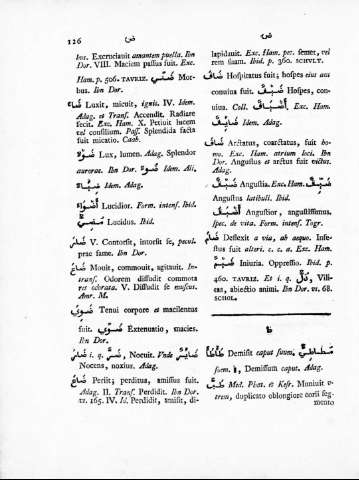 126
ض
ض
bus. Excruciavit amantem puella. Ibn
Dor. VIII. Maciem passus fuit. Exc.
Ham. p. 506. TAVRIZ. Mor-
bus. Ibn Dor.
ضاء Luxit, micuit, ignis. IV. Idem.
Adag. et Trans. Accendit. Radiare
fecit. Exc. Ham. X. Petiuit lucem
vel consilium. Pass. Splendida facta
fuit micatio. Caab.
Lux, lumen. Adag. Splendor
aurorae. Ibn Dor. Idem. Ali,
Idem. Adag.
Lucidior. Form. intens. Ibid.
Lucidus. Ibid.
V. Contorsit, intorsit se, pecul.
prae fame. Ibn Dor.
ضاع Mouit, commouit, agitauit. In-
trans. Odorem diffudit commota
res odorata. V. Diffudit se muscus.
Amr. M.
Tenui corpore et macilentus
fuit. Extenuatio, macies.
Ibn Dor.
i. q. Nocuit. Vnde
Nocens, noxius. Adag.
ضاع Periit; perditus, amissus fuit.
Adag. II. Trans. Perdidit. Ibn Dor.
vs. 165. IV. Id. Perdidit, amisit, di-
lapidauit. Exc. Ham. per semet, vel
rem suam. Ibid. p. 360. SCHVLT.
ضاف Hospitatus fuit; hospes eius aut
conuiua fuit. ضيف Hospes, con-
uiua. Coll. أضياف Exc. Ham.
Idem. Adag.
ضاق Arctatus, coarctatus, fuit ho-
mo. Exc. Ham. atrium loci. Ibn
Dor. Angustus et arctus fuit victus.
Adag.
ضيق Angustia. Exc. Ham.
Angustus latibuli. Ibid.
أضيق Angustior, angustissimus,
spec. de vita. Form. intens. Togr.
ضام Deflexit a via, ab aequo. Infe-
stus fuit alteri. c. c. a. Exc. Ham.
ضيم Iniuria. Oppressio. Ibid. p.
460. TAVRIZ. Et i. q. Vili-
tas, abiectio animi. Ibn Dor. vs. 68.
SCHOL.
ط
طأطأ Demisit caput suum.
suem. Demissum caput. Adag.
Med. Phat. et Kesr. Muniuit v-
trem, duplicato oblongiore corii seg-
mento